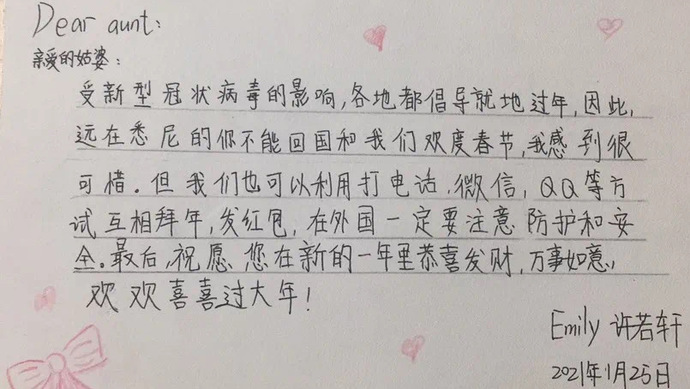 Dear aunt:
亲爱的姑婆：
受新型冠状病毒的影响,各地都倡导就地过年,因此,
远在悉尼的你不能回国和我们欢度春节,我感到很
可惜.但我们也可以利用打电话.微信,QQ等方
试互相拜年,发红包,在外国一定要注意防护和安
全.最后,祝愿您在新的一年里恭喜发财,万事如意,
欢欢喜喜过大年!
Emily 许若轩
2021年1月25日